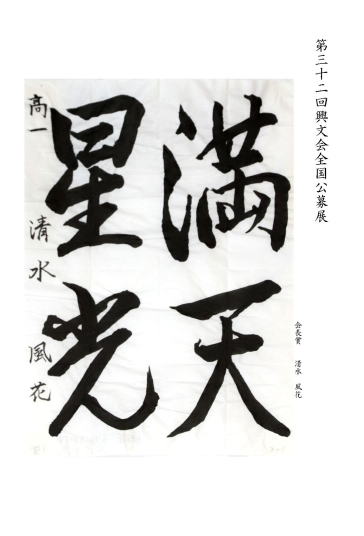 第三十二回興文会全国公募展
会長賞　清水　風花
満天
星光
高一　清水　風花